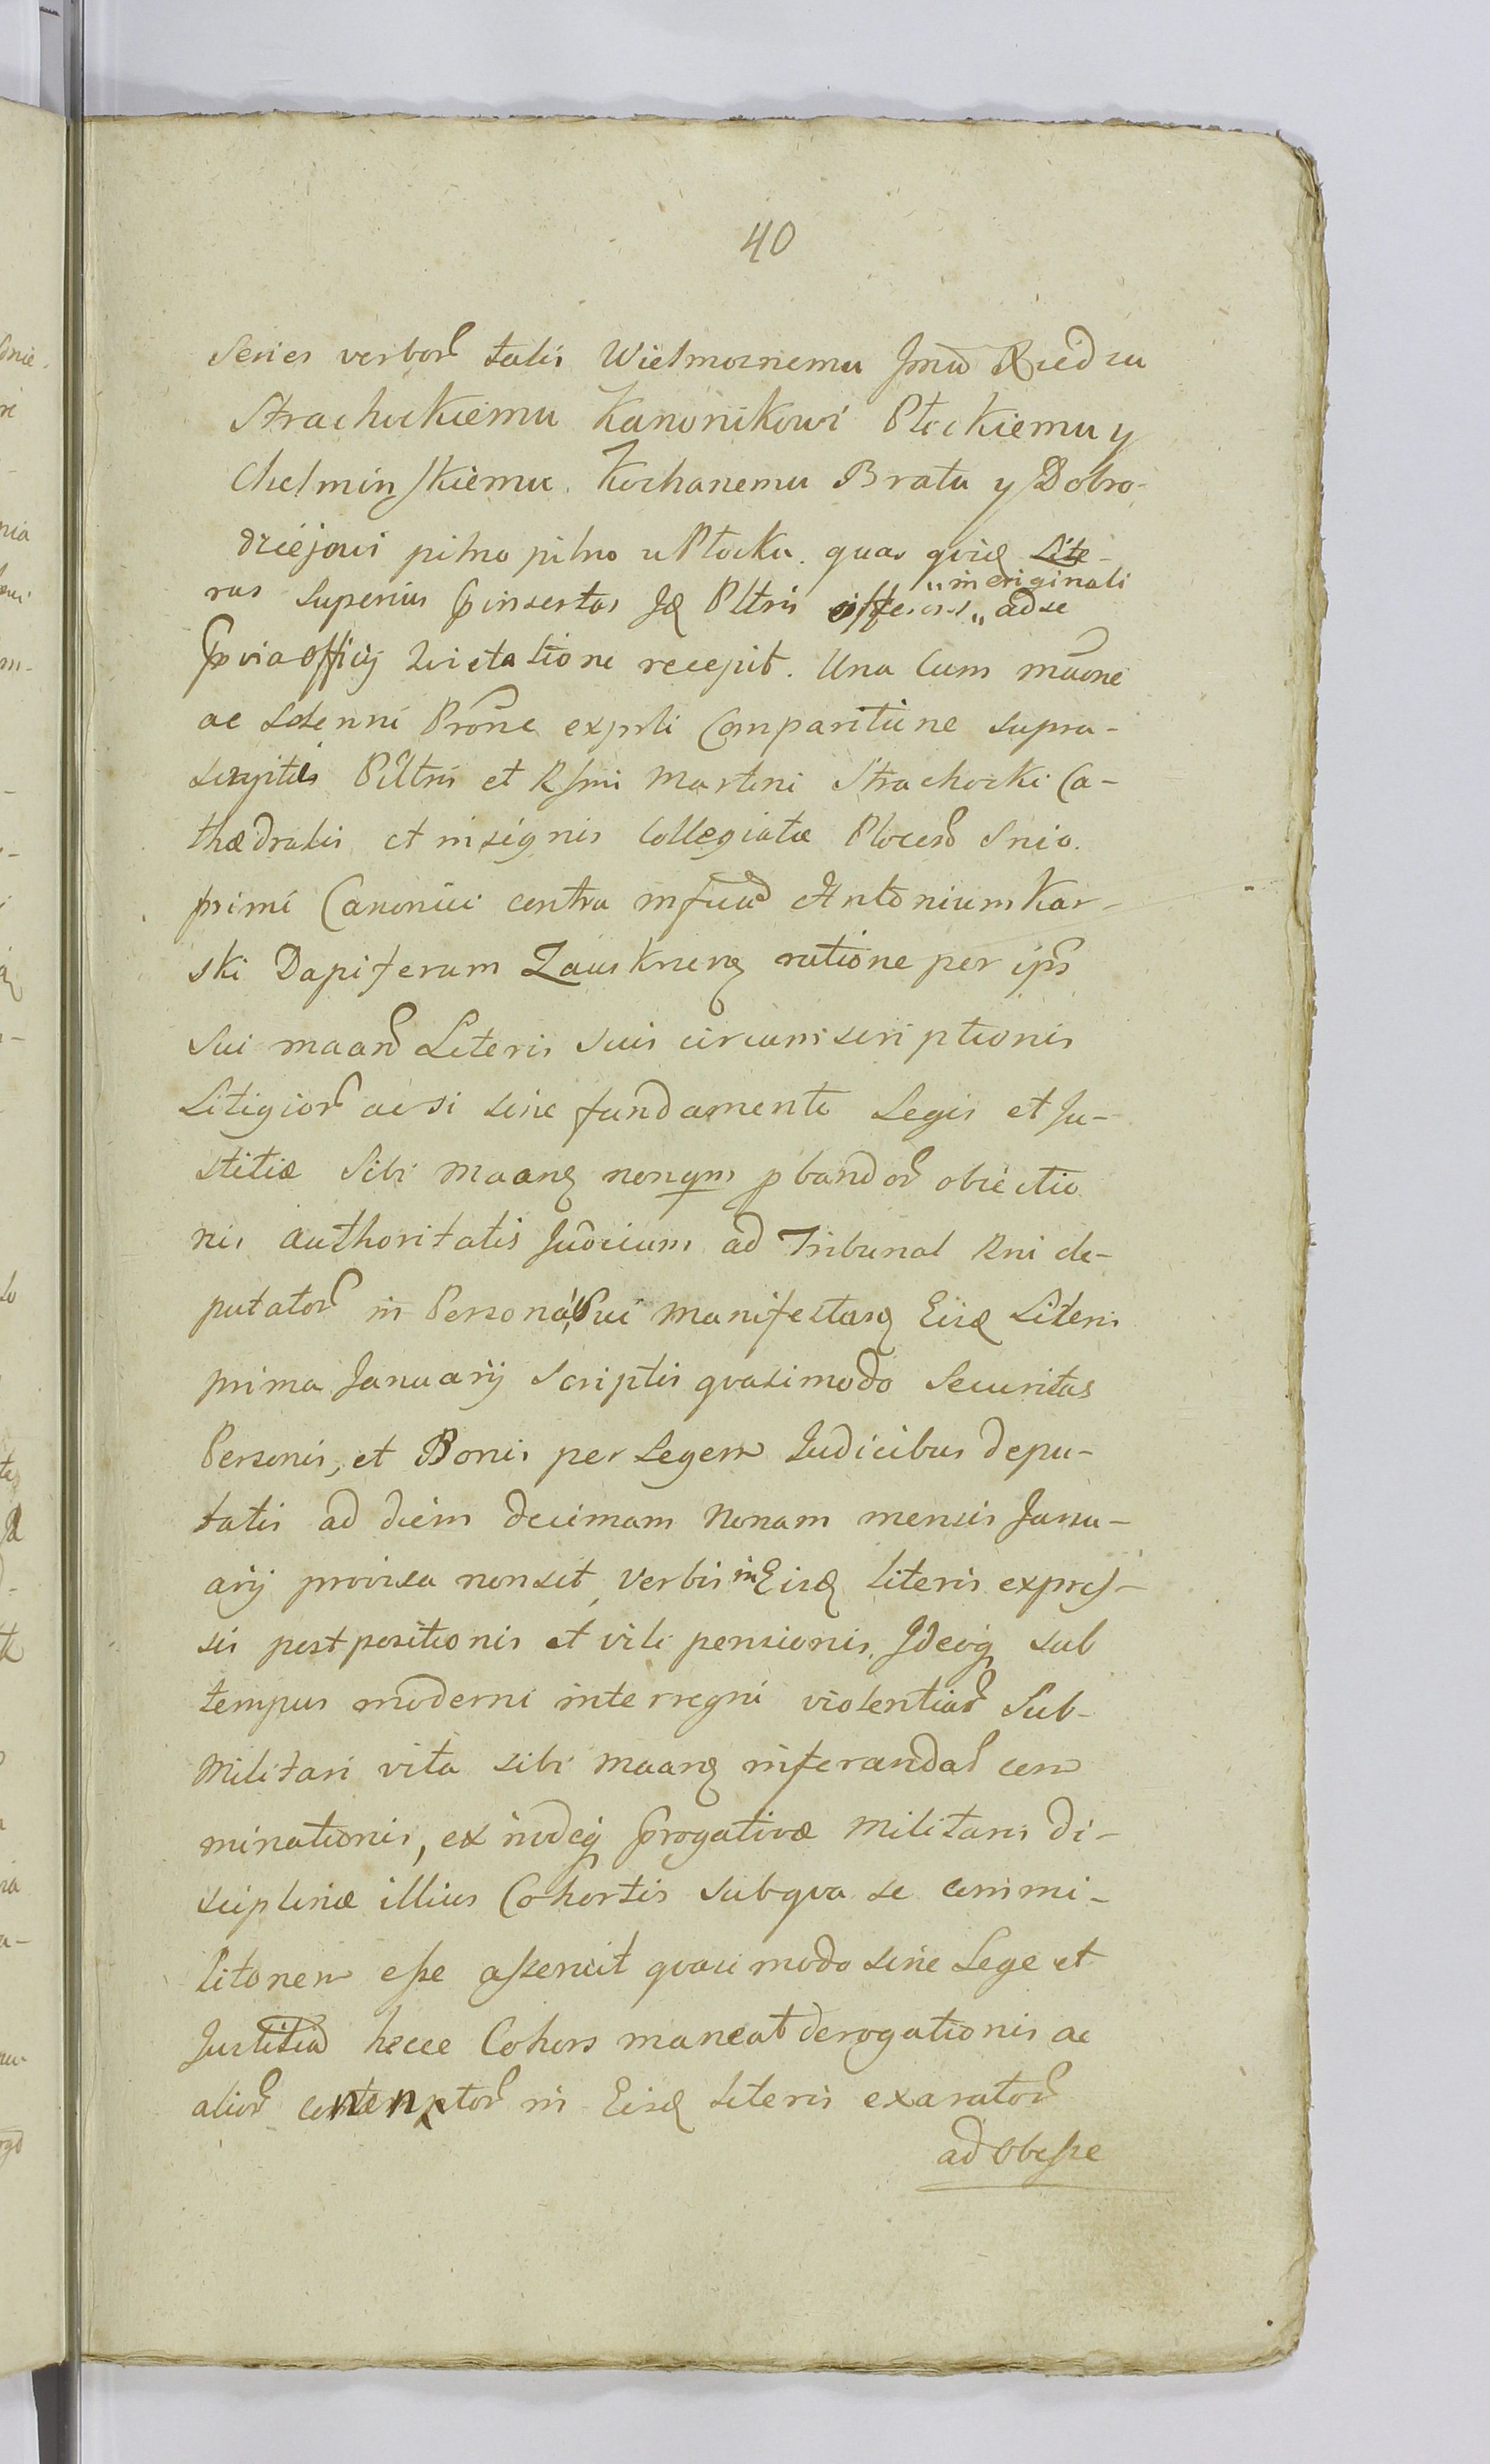 40
Series verbor talis Wielmoznemu Jmci Xiedzu
Strachockiemu Kanonikowi Płockiemu y
Chelminskiemu. Kochanemu Bratu y Dobro-
dziejowi pilno pilno w Płocku. quas quidę Lite-
ras superius insertas Idę Pltris offerens „in originali„ ad se
pvia officij Quietatione recepit. Una cum maone
ac solenni Prone exprti Comparitione supra-
scriptis Pltris et Rsmi Martini Strachocki Ca-
thædralis et insignis Collegiatæ Plocen Snio.
primi Canonici contra Antonium Kar-
ski Dapiferum Zauskrneng ratione per ips
sui maand Literis suis circumscriptionis
Litigior ac si sine fundamento Legis et Ju-
stitiæ sibi maang nonqm pbandor obiectio
nis authoritatis Judicium ad Tribunal Rni de-
putator in Persona sui manifestang Eisdę Literis
prima Januarij scriptis quasimodo Securitas
Personis, et Bonis per Legem Judicibus depu-
tatis ad diem decimam Nonam mensis Janu-
arij provisa non sit, Verbis in Eisdę literis expres-
sis postpositionis et vili pensionis, Ideoq sub
tempus moderni interregni violentiar Sub-
Militari vita sibi maang inferandar com
minationis, ex indeq progativæ Militaris di-
sciplinæ illius Cohortis sub qua se commi-
litonem esse asseruit quasimodo sine Lege et
Justitia hæcce Cohors maneat derogationis ac
alior contemptor in Eisdę literis exarator
ad obesse